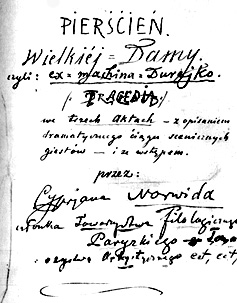 PIERŚCIEŃ.
Wielkiéj = Damy.
czyli: ex = machina = Durejko.
/: TRAGEDIA :/
we trzech Aktach – z opisaniem
dramatycznego ciągu scenicznych
giestów – i ze wstępem.
przez:
Cyprjana Norwida
członka Towarzystwa filologicznego
Paryzkiego Towa
rzystwa Artystycznego ect, ect,